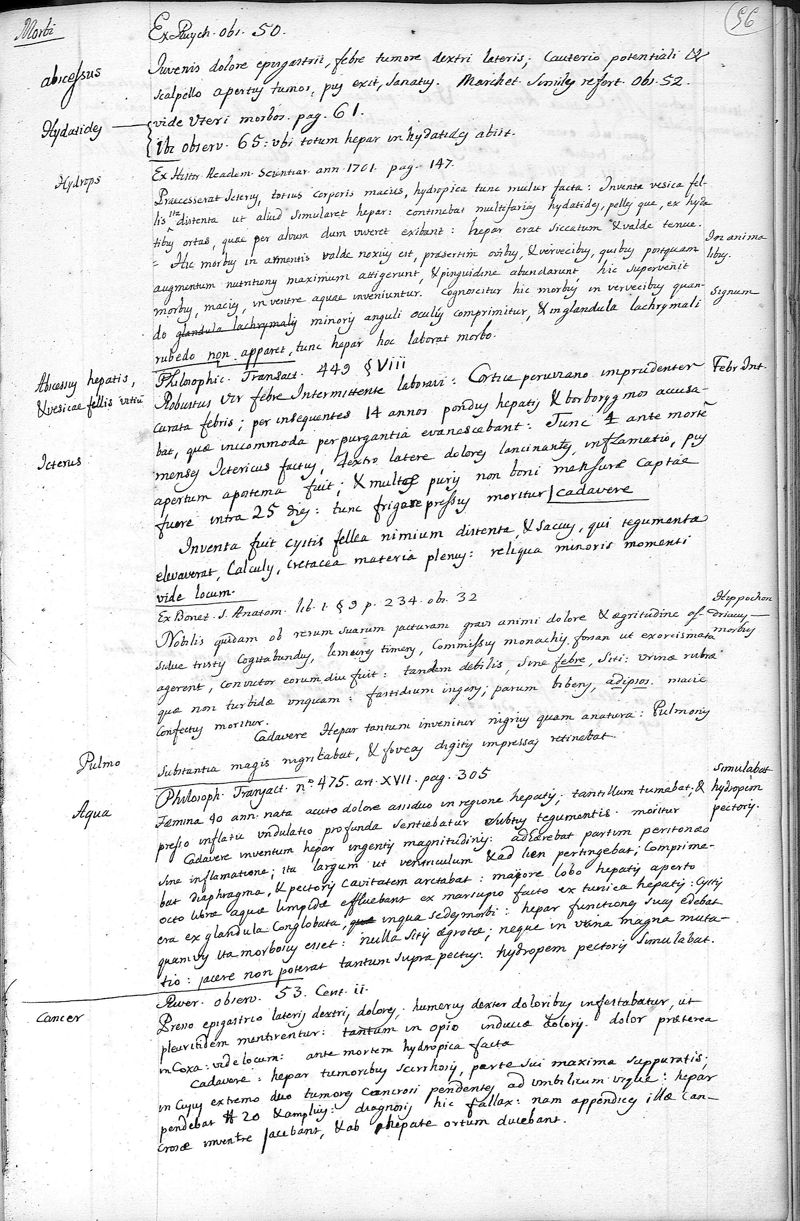 Morbi
56
Ex Ruych. obs. 50.
abscessus
Iuvenis dolore epigastrii, febre tumore dextri lateris; Cauterio potentiali &
scalpello apertus tumor, pus exit, sanatus. Marchet. similes refert. Obs. 52.
Hydatides
vide Uteri morbos. pag. 61.
Ibi observ. 65: ubi totum hepar in hydatides abiit.
Hydrops
Ex Histr. Academ. Scientiar. ann. 1701. pag. 147.
Praecesserat Icterus, totius corporis macies, hydropica tunc mulier facta: Inventa vesica fel-
lis ita distenta ut aliud simularet hepar: continebat multifarias hydatides, pelles que, ex hyda
tibus ortas, quae per alvum dum viveret exibant: hepar erat siccatum & valde tenue.
= Hic morbus in armentis valde noxius est, praesertim ovibus, & vervecibus, quibus postquam
In anima
libus.
augmentum nutritionis maximum attigerunt, & pinguidine abundarunt hic supervenit
morbus, macies, in ventre aquae inveniuntur. Cognoscitur hic morbus in vervecibus quan-
Signum
do glandula lachrymalis minoris anguli oculis comprimitur, & in glandula lachrymali
rubedo non apparet, tunc hepar hoc laborat morbo.
Abscessus hepatis,
& vesicae fellis vitiu
Philosophic. Transact. 449 § VIII
Robustus vir febre Intermittente laboravi: Cortice peruviano imprudenter
Febr Int.
curata febris; per insequentes 14 annos pondus hepatis & borborygmos accusa-
bat, quae incommoda per purgantia evanescebant: Tunc 4 ante morte
Icterus
menses Ictericus factus, dextro latere dolores lancinantes, inflamatio, pus
apertum apostema fuit; & multae puris non boni mensurae captae
fuere intra 25 dies: tunc frigore pressus moritur cadavere
Inventa fuit cystis fellea nimium distenta, & saccus, qui tegumenta
elevaverat, Calculis, cretacea materia plenus: reliqua minoris momenti
vide locum.
Ex Bonet. S. Anatom. lib. 1. § 9 p. 234. obs. 32
Nobilis quidam ob rerum suarum jacturam gravi animi dolore & aegritudine as
Hyppochon
driacus
morbus
sidue tristis Cogitabundus, lemures timens, Commissus monachis forsan ut exorcismata
agerent, convictor eorum diu fuit: tandem debilis, sine febre, siti: urinae rubrae
quae non turbidae unquam: fastidium ingens; parum bibens, adipsos. macie
confectus moritur.
Cadavere Hepar tantum invenitur nigrius quam a natura: Pulmonis
Pulmo
substantia magis nigricabat, & foveas digitis impressas retinebat
Philosoph. Transact. n° 475. art. XVII. pag. 305
Aqua
Faemina 40 ann. nata acuto dolore assiduo in regione hepatis; tantillum tumebat, &
Simulabat
hydropem
pectoris.
presso inflatu undulatio profunda sentiebatur subtus tegumentis. moritur
Cadavere inventum hepar ingentis magnitudinis: adhaerebat partim peritonaeo
sine inflamatione; ita largum ut ventriculum & ad lien pertingebat; Comprime-
bat diaphragma, & pectoris cavitatem arctabat: majore lobo hepatis aperto
octo librae aquae limpidae effluebant ex marsupio facto ex tunica hepatis: Cystis
era ex glandula Conglobata, in qua sedes morbi: hepar functiones suas edebat
quamvis ita morbosus esset: nulla sitis aegrotae; neque in urina magna muta-
tio: jacere non poterat tantum supra pectus. hydropem pectoris simulabat.
River. observ. 53. Cent. ii.
Cancer
Presso epigastrio lateris dextri, dolores,: humerus dexter doloribus infestabatur, ut
pleuritidem mentirentur: tantum in opio induciae doloris. dolor praeterea
in Coxa: vide locum: ante mortem hydropica facta
Cadavere: hepar tumoribus scirrhosis, parte sui maxima suppuratis;
in cujus extremo duo tumores cancrosi pendentes ad umbilicum usque: hepar
pendebat ℔ 20 & amplius: diagnosis hic fallax: nam appendices illae can-
crosae in ventre jacebant, & ab hepate ortum ducebant.